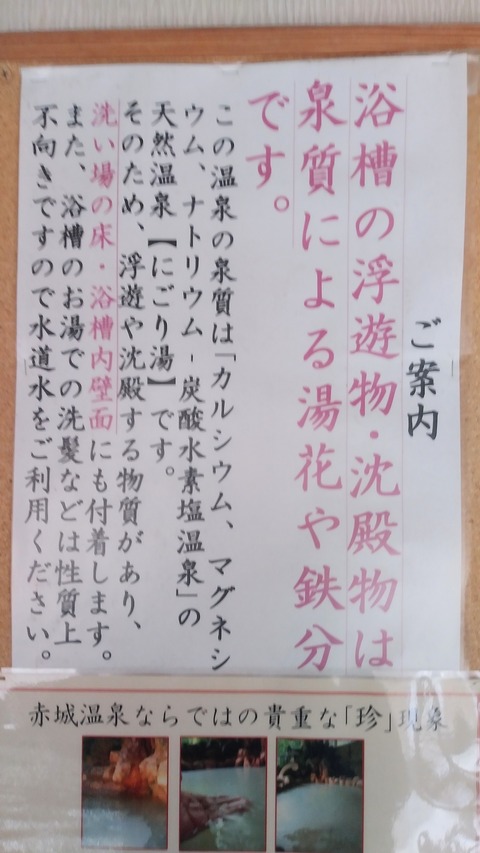 ご案内
浴槽の浮遊物・沈殿物は
泉質による湯花や鉄分
です。
この温泉の泉質は「カルシウム、マグネシ
ウム、ナトリウム-炭酸水素塩温泉」の
天然温泉【にごり湯】です。
そのため、浮遊や沈殿する物質があり、
洗い場の床・浴槽内壁面にも付着します。
また、浴槽のお湯での洗髪などは性質上
不向きですので水道水をご利用ください。
赤城温泉ならではの貴重な「珍」現象